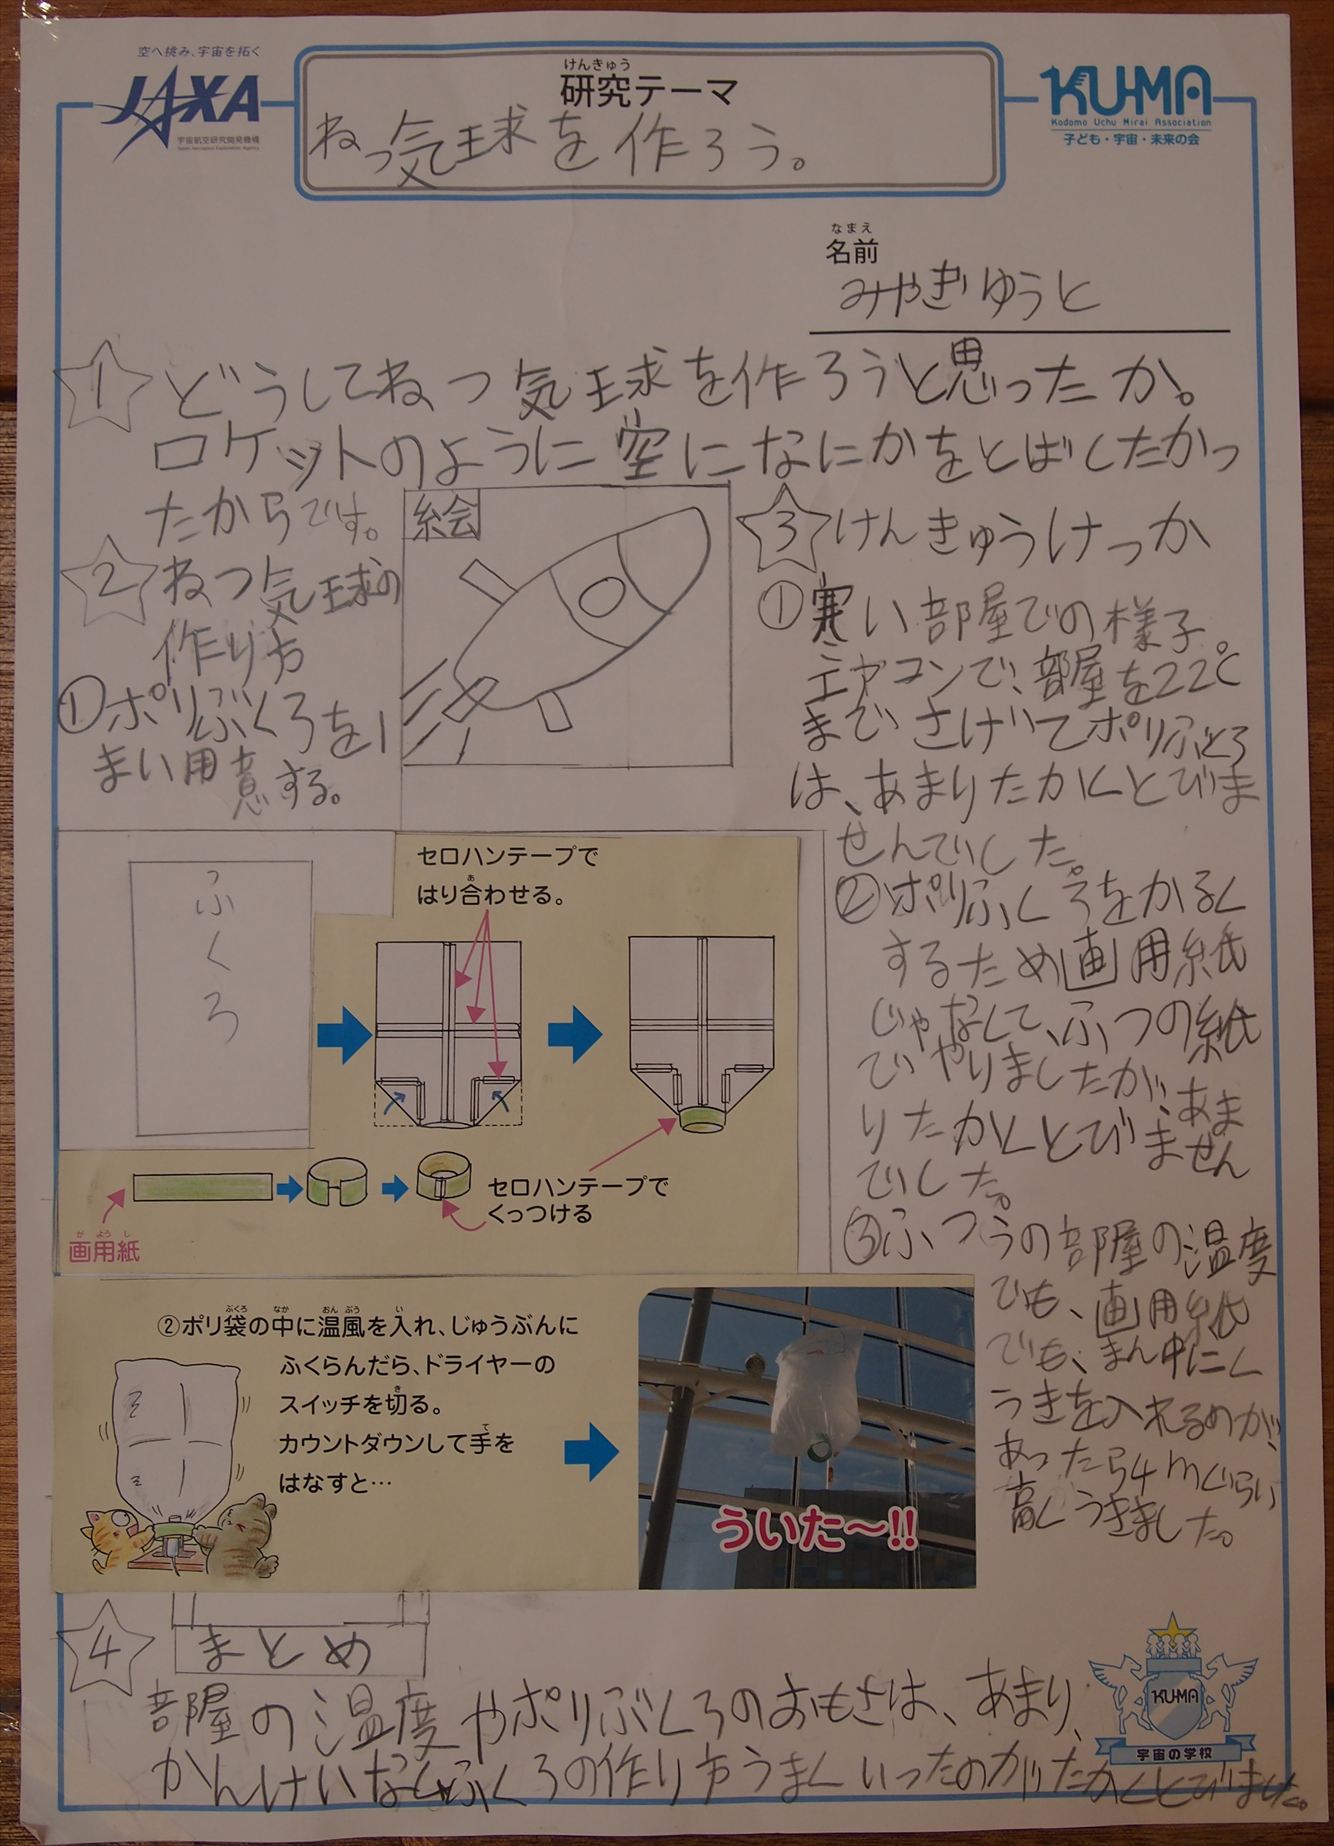 空へ挑み、宇宙を拓く
JAXA
宇宙航空研究開発機構
Japan Aerospace Exploration Agency
けんきゅう
研究テーマ
ねっ気球を作ろう。
KU-MA
Kodomo Uchu Mirai Association
子ども・宇宙・未来の会
なまえ
名前
みやぎゆうと
1 どうしてねっ気球を作ろうと思ったか。
ロケットのように空になにかをとばしたかっ
たからです。
絵
2 ねっ気球の
作り方
①ポリぶくろを1
まい用意する。
ふくろ
セロハンテープで
あ
はり合わせる。
セロハンテープで
くっつける
がようし
画用紙
ぶくろ なか おんぷう い
②ポリ袋の中に温風を入れ、じゅうぶんに
ふくらんだら、ドライヤーの
き
スイッチを切る。
て
カウントダウンして手を
はなすと…
ういた〜!!
3 けんきゅうけっか
①寒い部屋での様子。
エヤコンで、部屋を22℃
までさげてポリぶくろ
は、あまりたかくとびま
せんでした。
②ポリふくろをかるく
するため画用紙
じゃなくて、ふつの紙
でやりましたが、あま
りたかくとびません
でした。
③ふつうの部屋の温度
でも、画用紙
でも、まん中にく
うきを入れるめが
あったら4mぐらい
高くうきました。
4 まとめ
部屋の温度やポリぶくろのおもさは、あまり、
かんけいなくふくろの作り方うまくいったのがたかくとびました。
KU-MA
宇宙の学校